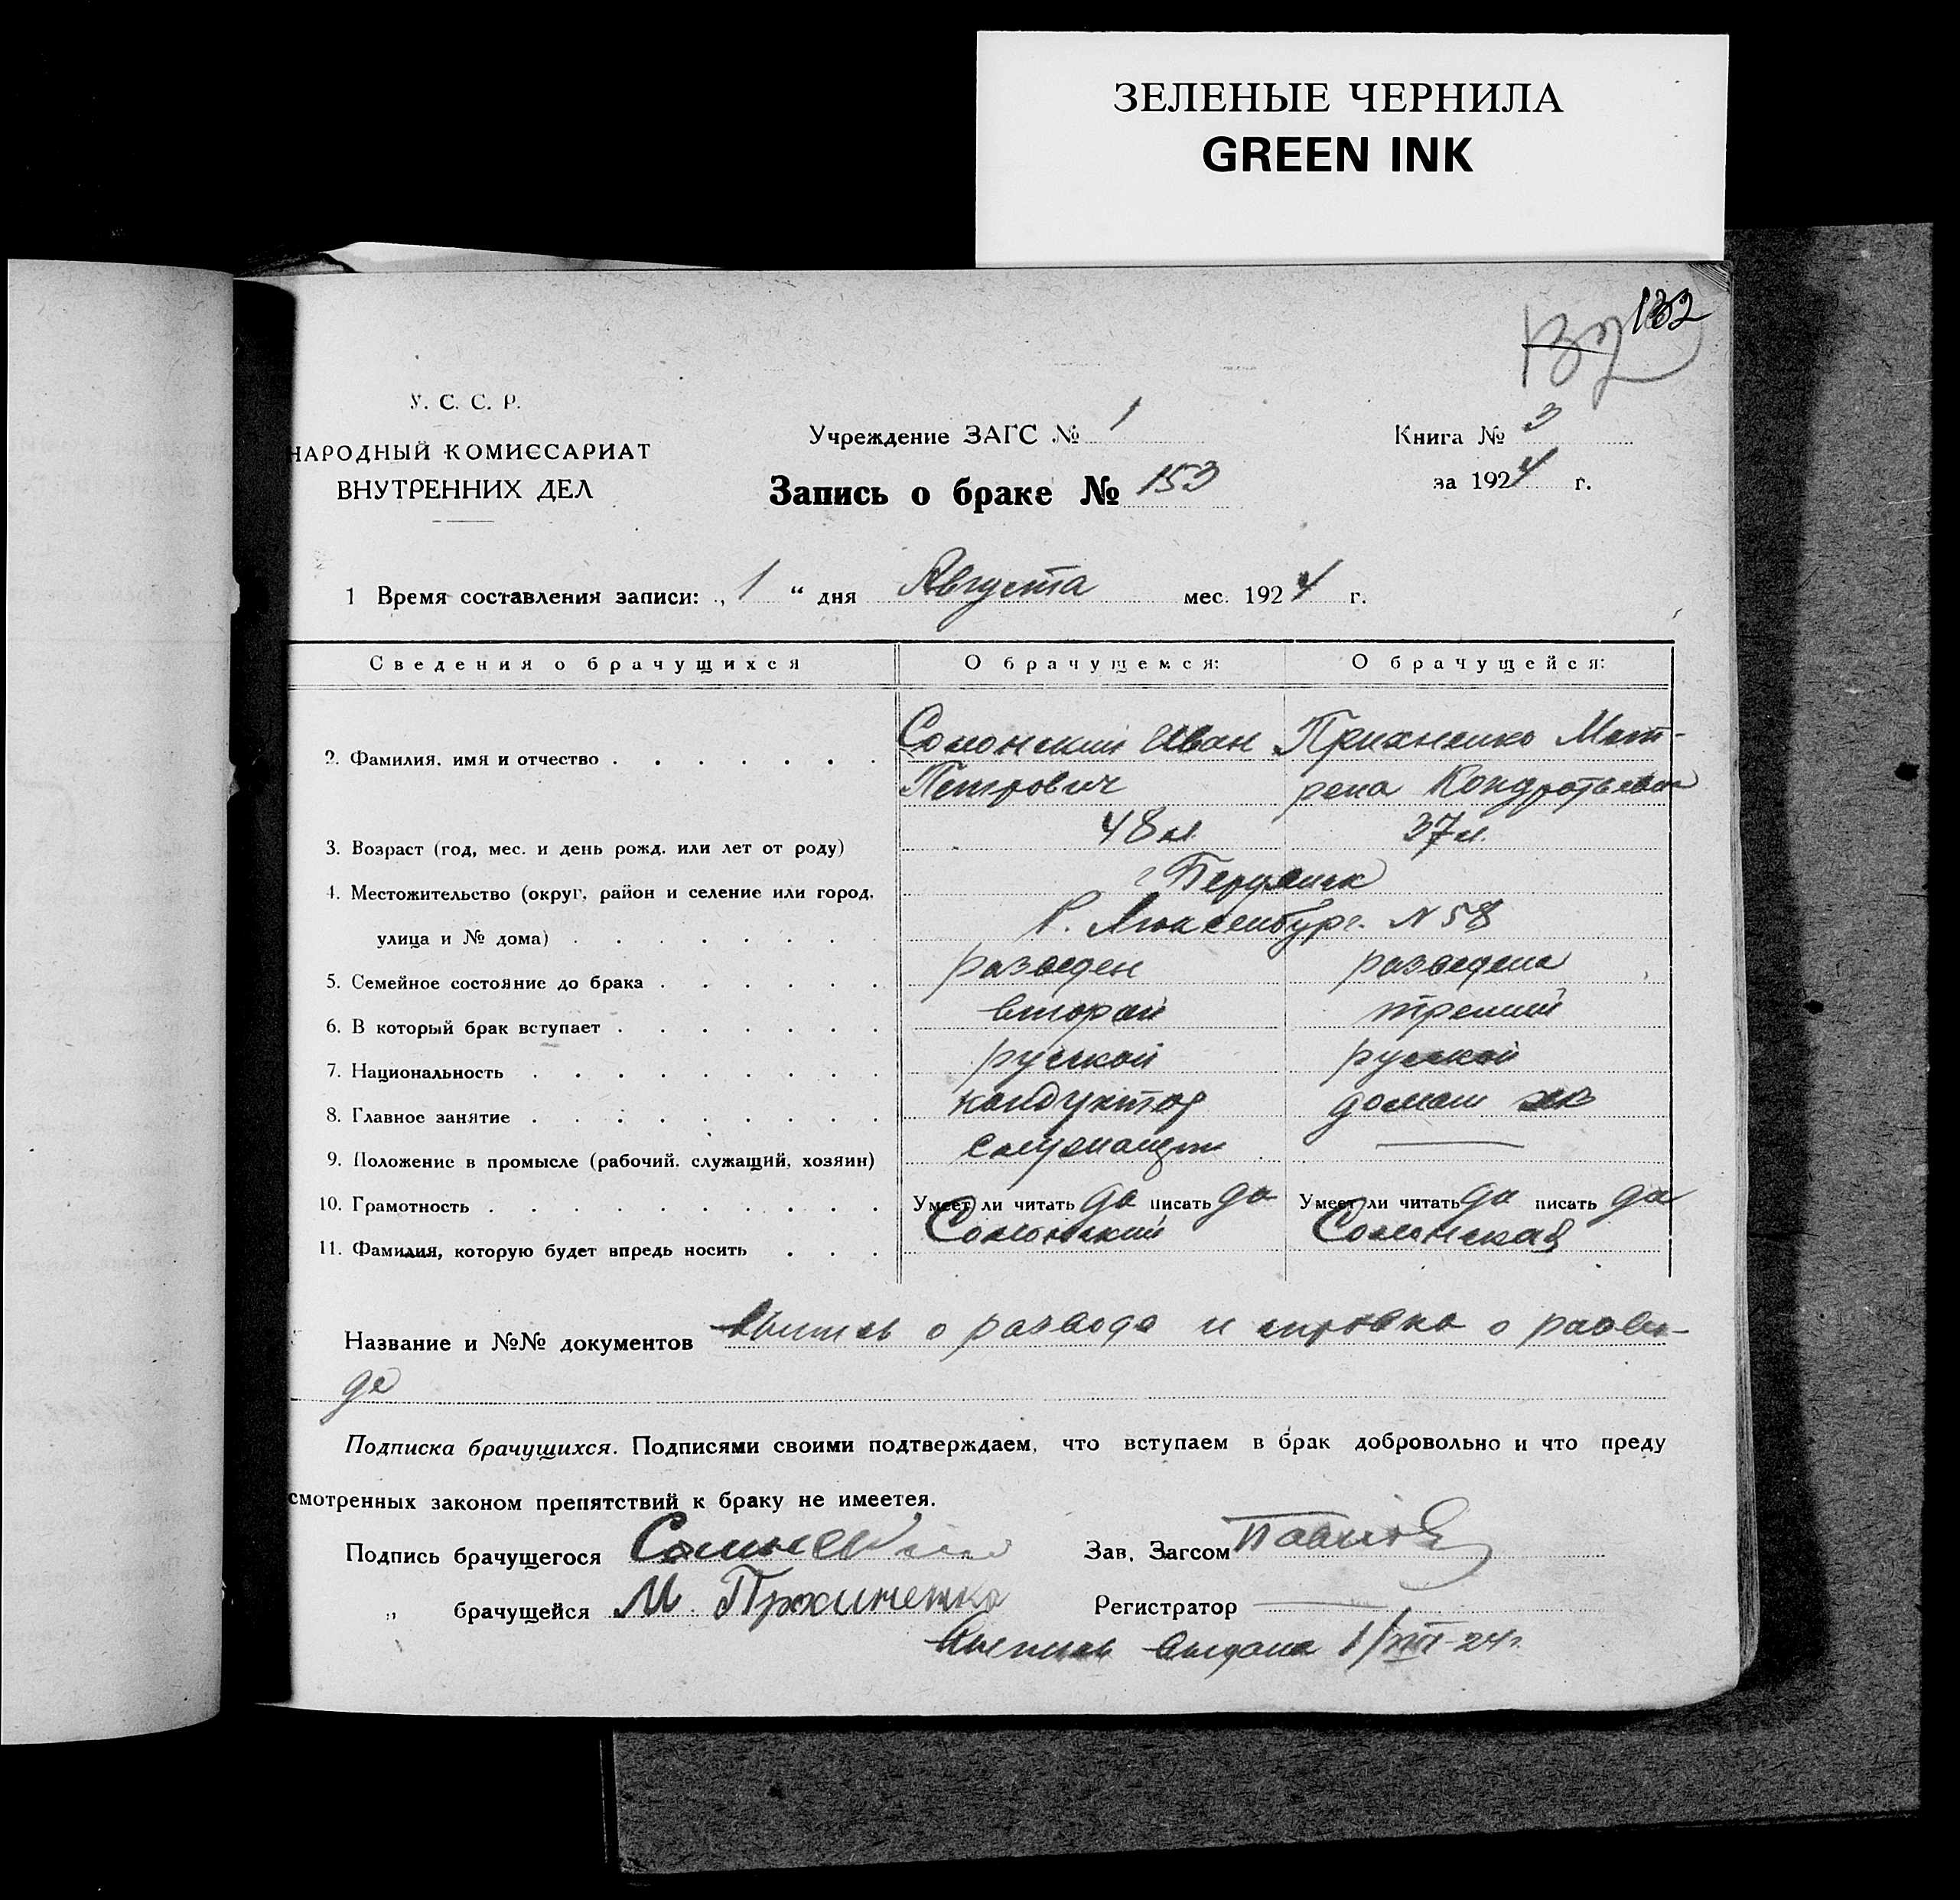 ЗЕЛЕНЫЕ ЧЕРНИЛА
GREEN INK
132
132
У. С. С. Р.
НАРОДНЫЙ КОМИССАРИАТ
ВНУТРЕННИХ ДЕЛ
Учреждение ЗАГС № 1
Книга № 3
Запись о браке № 153
за 1924 г.
1 Время составления записи: „ 1 “ дня Августа мес. 1924 г.
Сведения о брачущихся О брачущемся: О брачущейся:
2. Фамилия, имя и отчество Иван Мат-
Петрович рена Кондратьевна
3. Возраст (год, мес. и день рожд. или лет от роду) 48 л. 37 л.
4. Местожительство (округ, район и селение или город, г Бердянск
улица и № дома) Р. Люксенбург. N 58
5. Семейное состояние до брака разведен разведена
6. В который брак вступает второй третий
7. Национальность русской русской
8. Главное занятие кондуктор домаш хоз
9. Положение в промысле (рабочий, служащий, хозяин) служащий
10. Грамотность Умеет ли читать да писать да Умеет ли читать да писать да
11. Фамилия, которую будет впредь носить
Название и №№ документов Выпись о разводе и справка о разво-
де
Подписка брачущихся. Подписями своими подтверждаем, что вступаем в брак добровольно и что преду
смотренных законом препятствий к браку не имеетея.
Подпись брачущегося Зав. Загсом
„ брачущейся М. Регистратор
Выпись выдана 1/VIII-24 г.